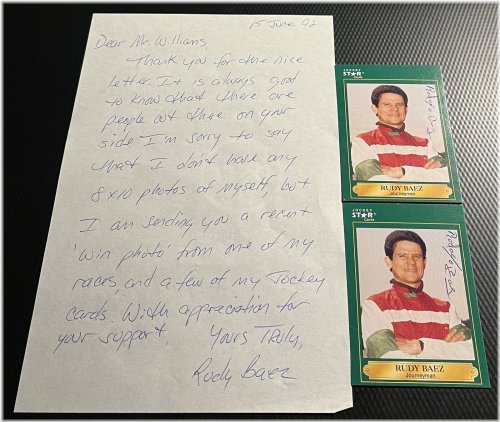 15 June 92
Dear Mr. Williams,
Thank you for the nice
letter. It is always good
to know that there are
people out there on your
side I'm sorry to say
that I don't have any
8x10 photos of myself, but
I am sending you a recent
'win photo' from one of my
races, and a few of my Jockey
cards. With appreciation for
your support,
Yours Truly,
Rudy Baez
JOCKEY
STAR
Cards
RUDY BAEZ
Journeyman
JOCKEY
STAR
Cards
RUDY BAEZ
Journeyman